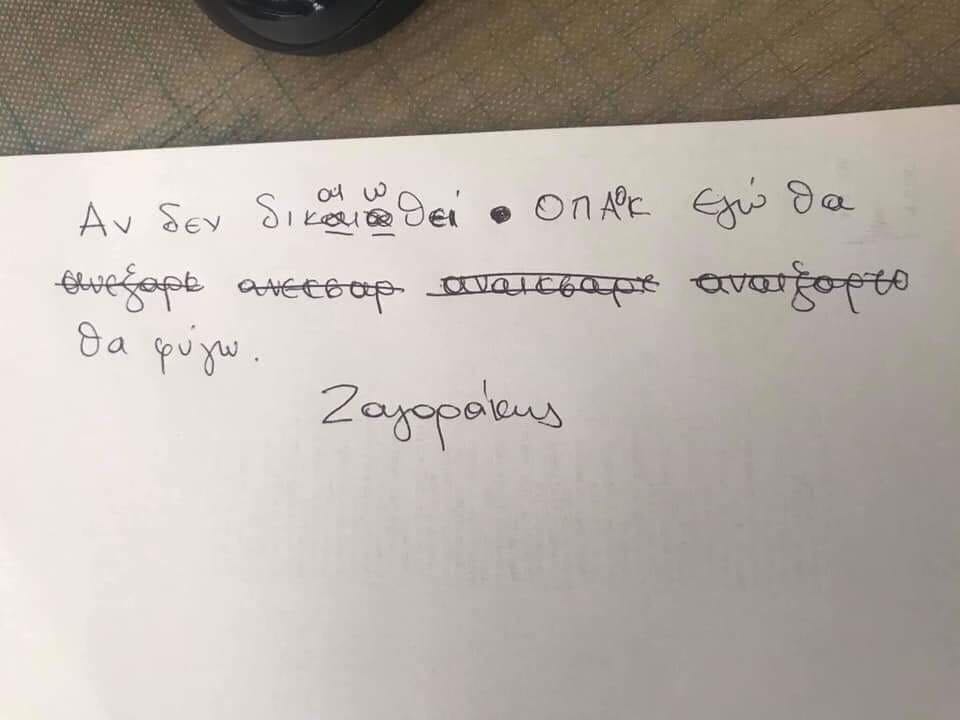 Αν δεν δικαιωθεί • ΟΠΑΟΚ εγώ θα
ανεξαρτ ανεκσαρ αναικσαρτ αναιξαρτο
θα φύγω.
Ζαγοράκης